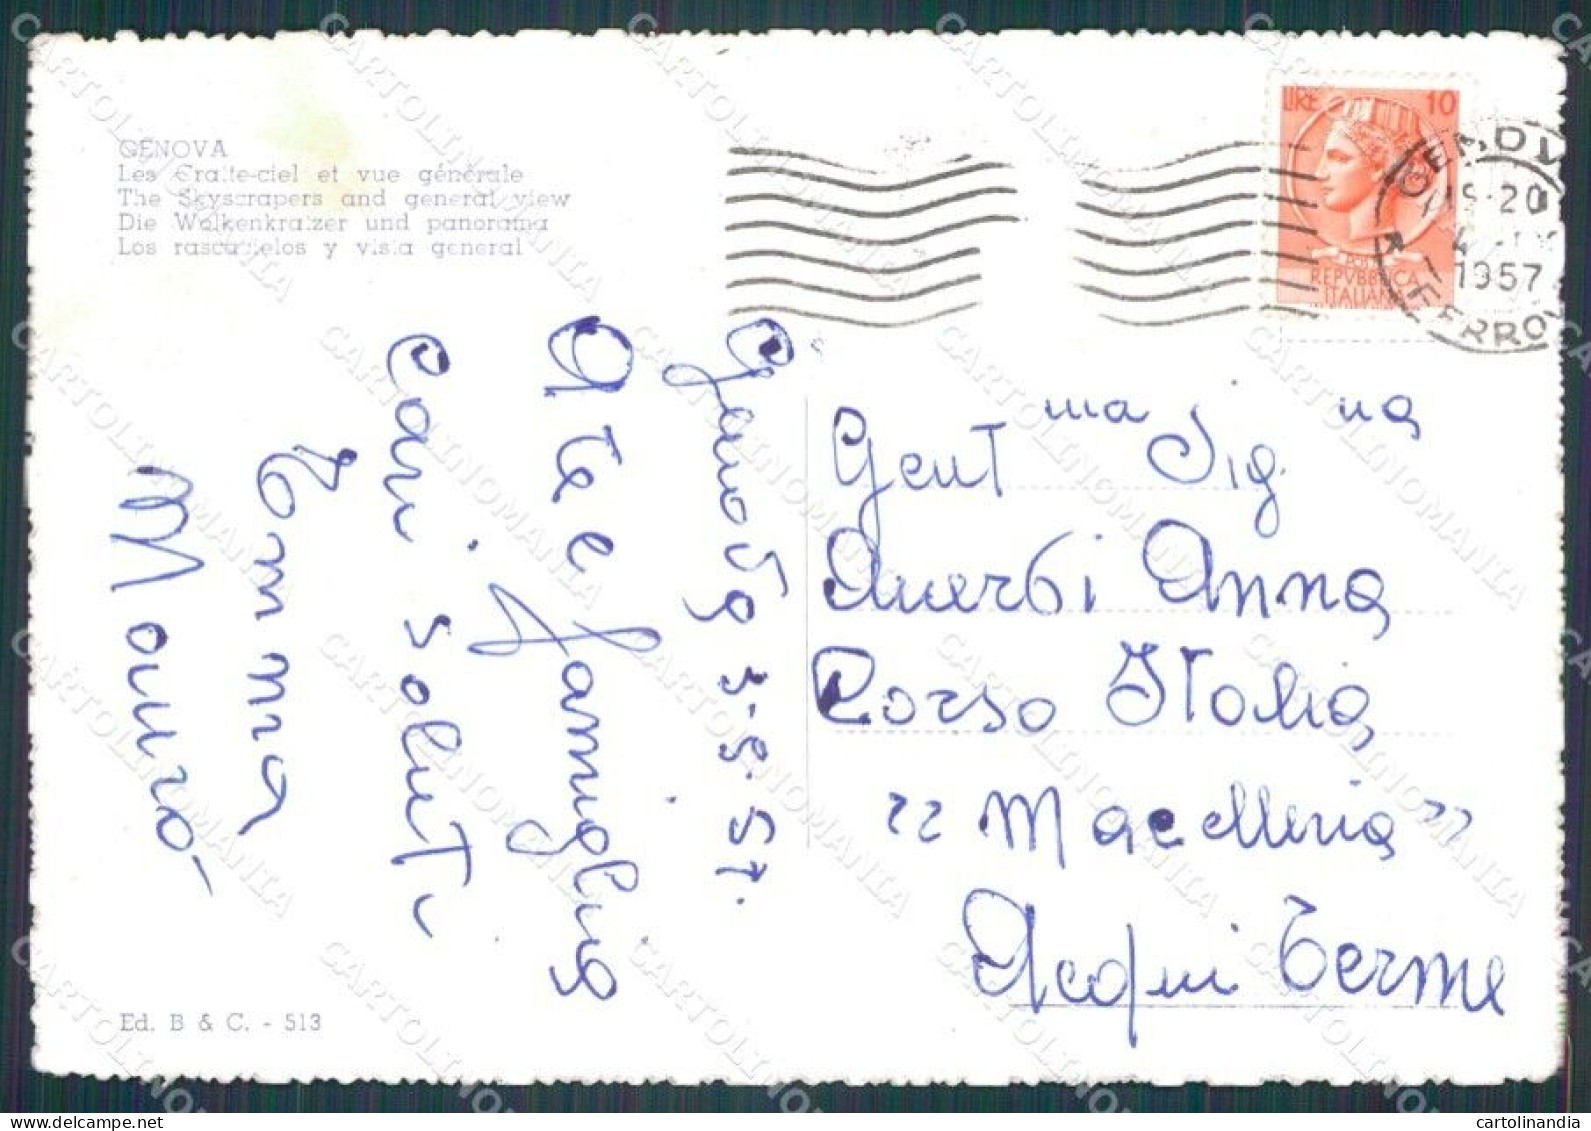 GENOVA
Les Gratte-ciel et vue générale
The Skyscrapers and general view
Die Wolkenkratzer und panorama
Los rascacielos y vista general
LIRE 10
REPVBBLICA
ITALIANA
GENOVA
FERROV
1957
Genova 3-5-57.
A te e famiglia
cari saluti
Emma
Mauro
Gent ma Sig. na
Averbi Anna
Corso Italia
"Macelleria"
Acqui Terme
Ed. B & C. - 513
CARTOLINOMANIA
www.delcampe.net
cartolinandia